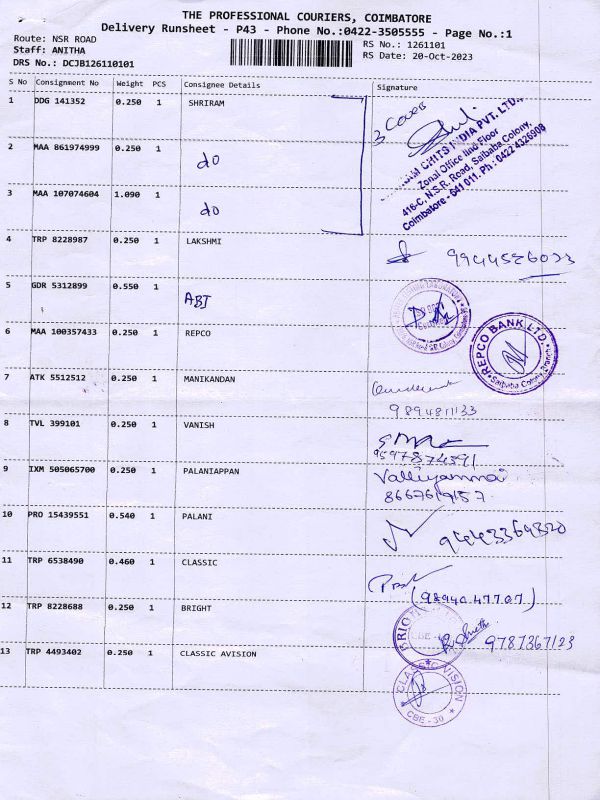 THE PROFESSIONAL COURIERS, COIMBATORE
Delivery Runsheet - P43 - Phone No.:0422-3505555 - Page No.:1
Route: NSR ROAD
Staff: ANITHA
DRS No.: DCJB126110101
RS No.: 1261101
RS Date: 20-Oct-2023
S No Consignment No Weight PCS Consignee Details Signature
1 DDG 141352 0.250 1 SHRIRAM
3 Cover
CHITS INDIA PVT. LTD.
Zonal Office IInd Floor
416-C, N.S.R. Road, Saibaba Colony,
Coimbatore - 641 011. Ph : 0422 4326909
2 MAA 861974999 0.250 1 do
3 MAA 107074604 1.090 1 do
4 TRP 8228987 0.250 1 LAKSHMI
5 GDR 5312899 0.550 1 ABI
6 MAA 100357433 0.250 1 REPCO
REPCO BANK LTD.
Saibaba Colony Branch
7 ATK 5512512 0.250 1 MANIKANDAN
9894811133
8 TVL 399101 0.250 1 VANISH
9597874391
9 IXM 505065700 0.250 1 PALANIAPPAN
Valliyammai
8667619157
10 PRO 15439551 0.540 1 PALANI
94443369320
11 TRP 6538490 0.460 1 CLASSIC
(98940 47707)
12 TRP 8228688 0.250 1 BRIGHT
9787367123
13 TRP 4493402 0.250 1 CLASSIC AVISION
CLASSIC VISION
CBE - 30